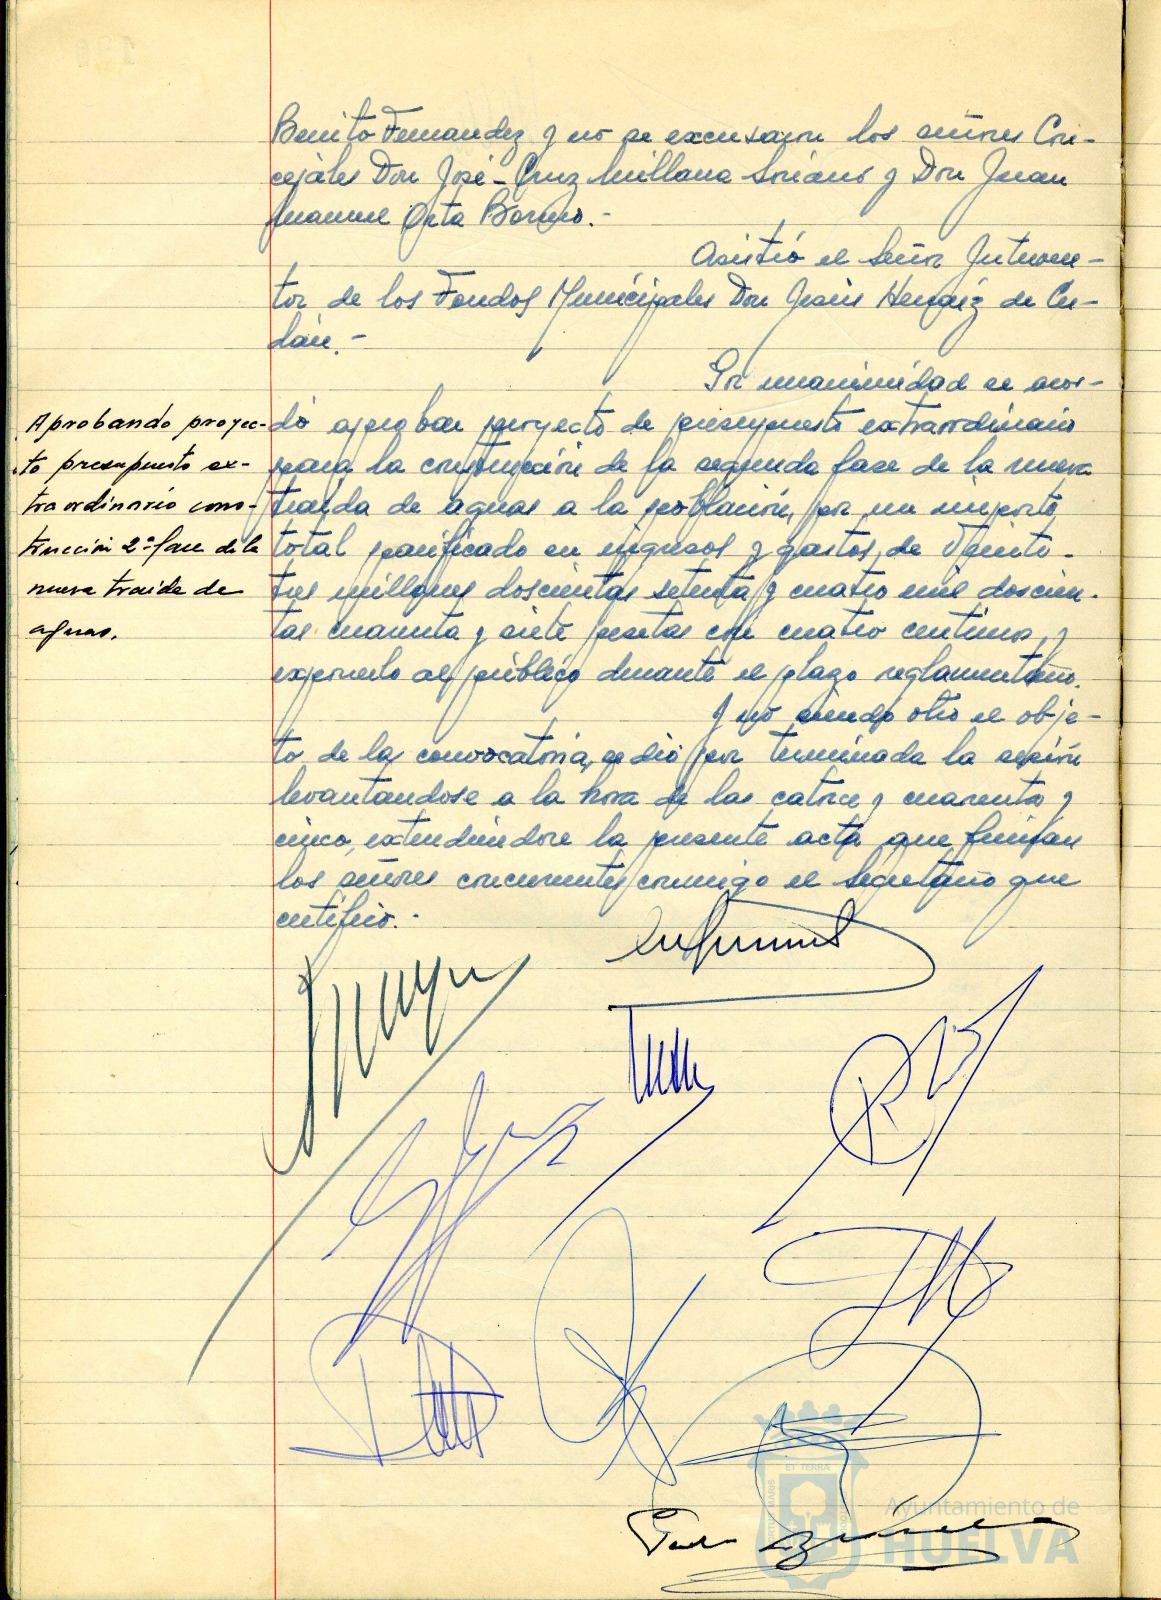 Benito Fernandez y no se excusaron los señores Con-
cejales Don José-Cruz Millana Soriano y Don Juan
Manuel Orta Borrero.-
Asistió el Señor Interven-
tor de los Fondos Municipales Don Jesús Hernáiz de
-
Por unanimidad se acor-
dó aprobar proyecto de presupuesto extraordinario
para la construcción de la segunda fase de la nueva
traida de aguas a la población, por un importe
total panificado en ingresos y gastos, de Veinti-
tres millones doscientas setenta y cuatro mil doscien-
tas cuarenta y siete pesetas con cuatro centimos, y
exponerlo al público durante el plazo reglamentario.
Y no siendo otro el obje-
to, de la convocatoria, se dió por terminada la sesión
levantandose a la hora de las catorce y cuarenta y
cinco, extendiendose la presente acta que firman
los señores concurrentes conmigo el Secretario que
certifico.-
Aprobando proyec-
to presupuesto ex-
traordinario cons-
trucción 2ª fase de la
nueva traida de
aguas.
Ayuntamiento de
HUELVA